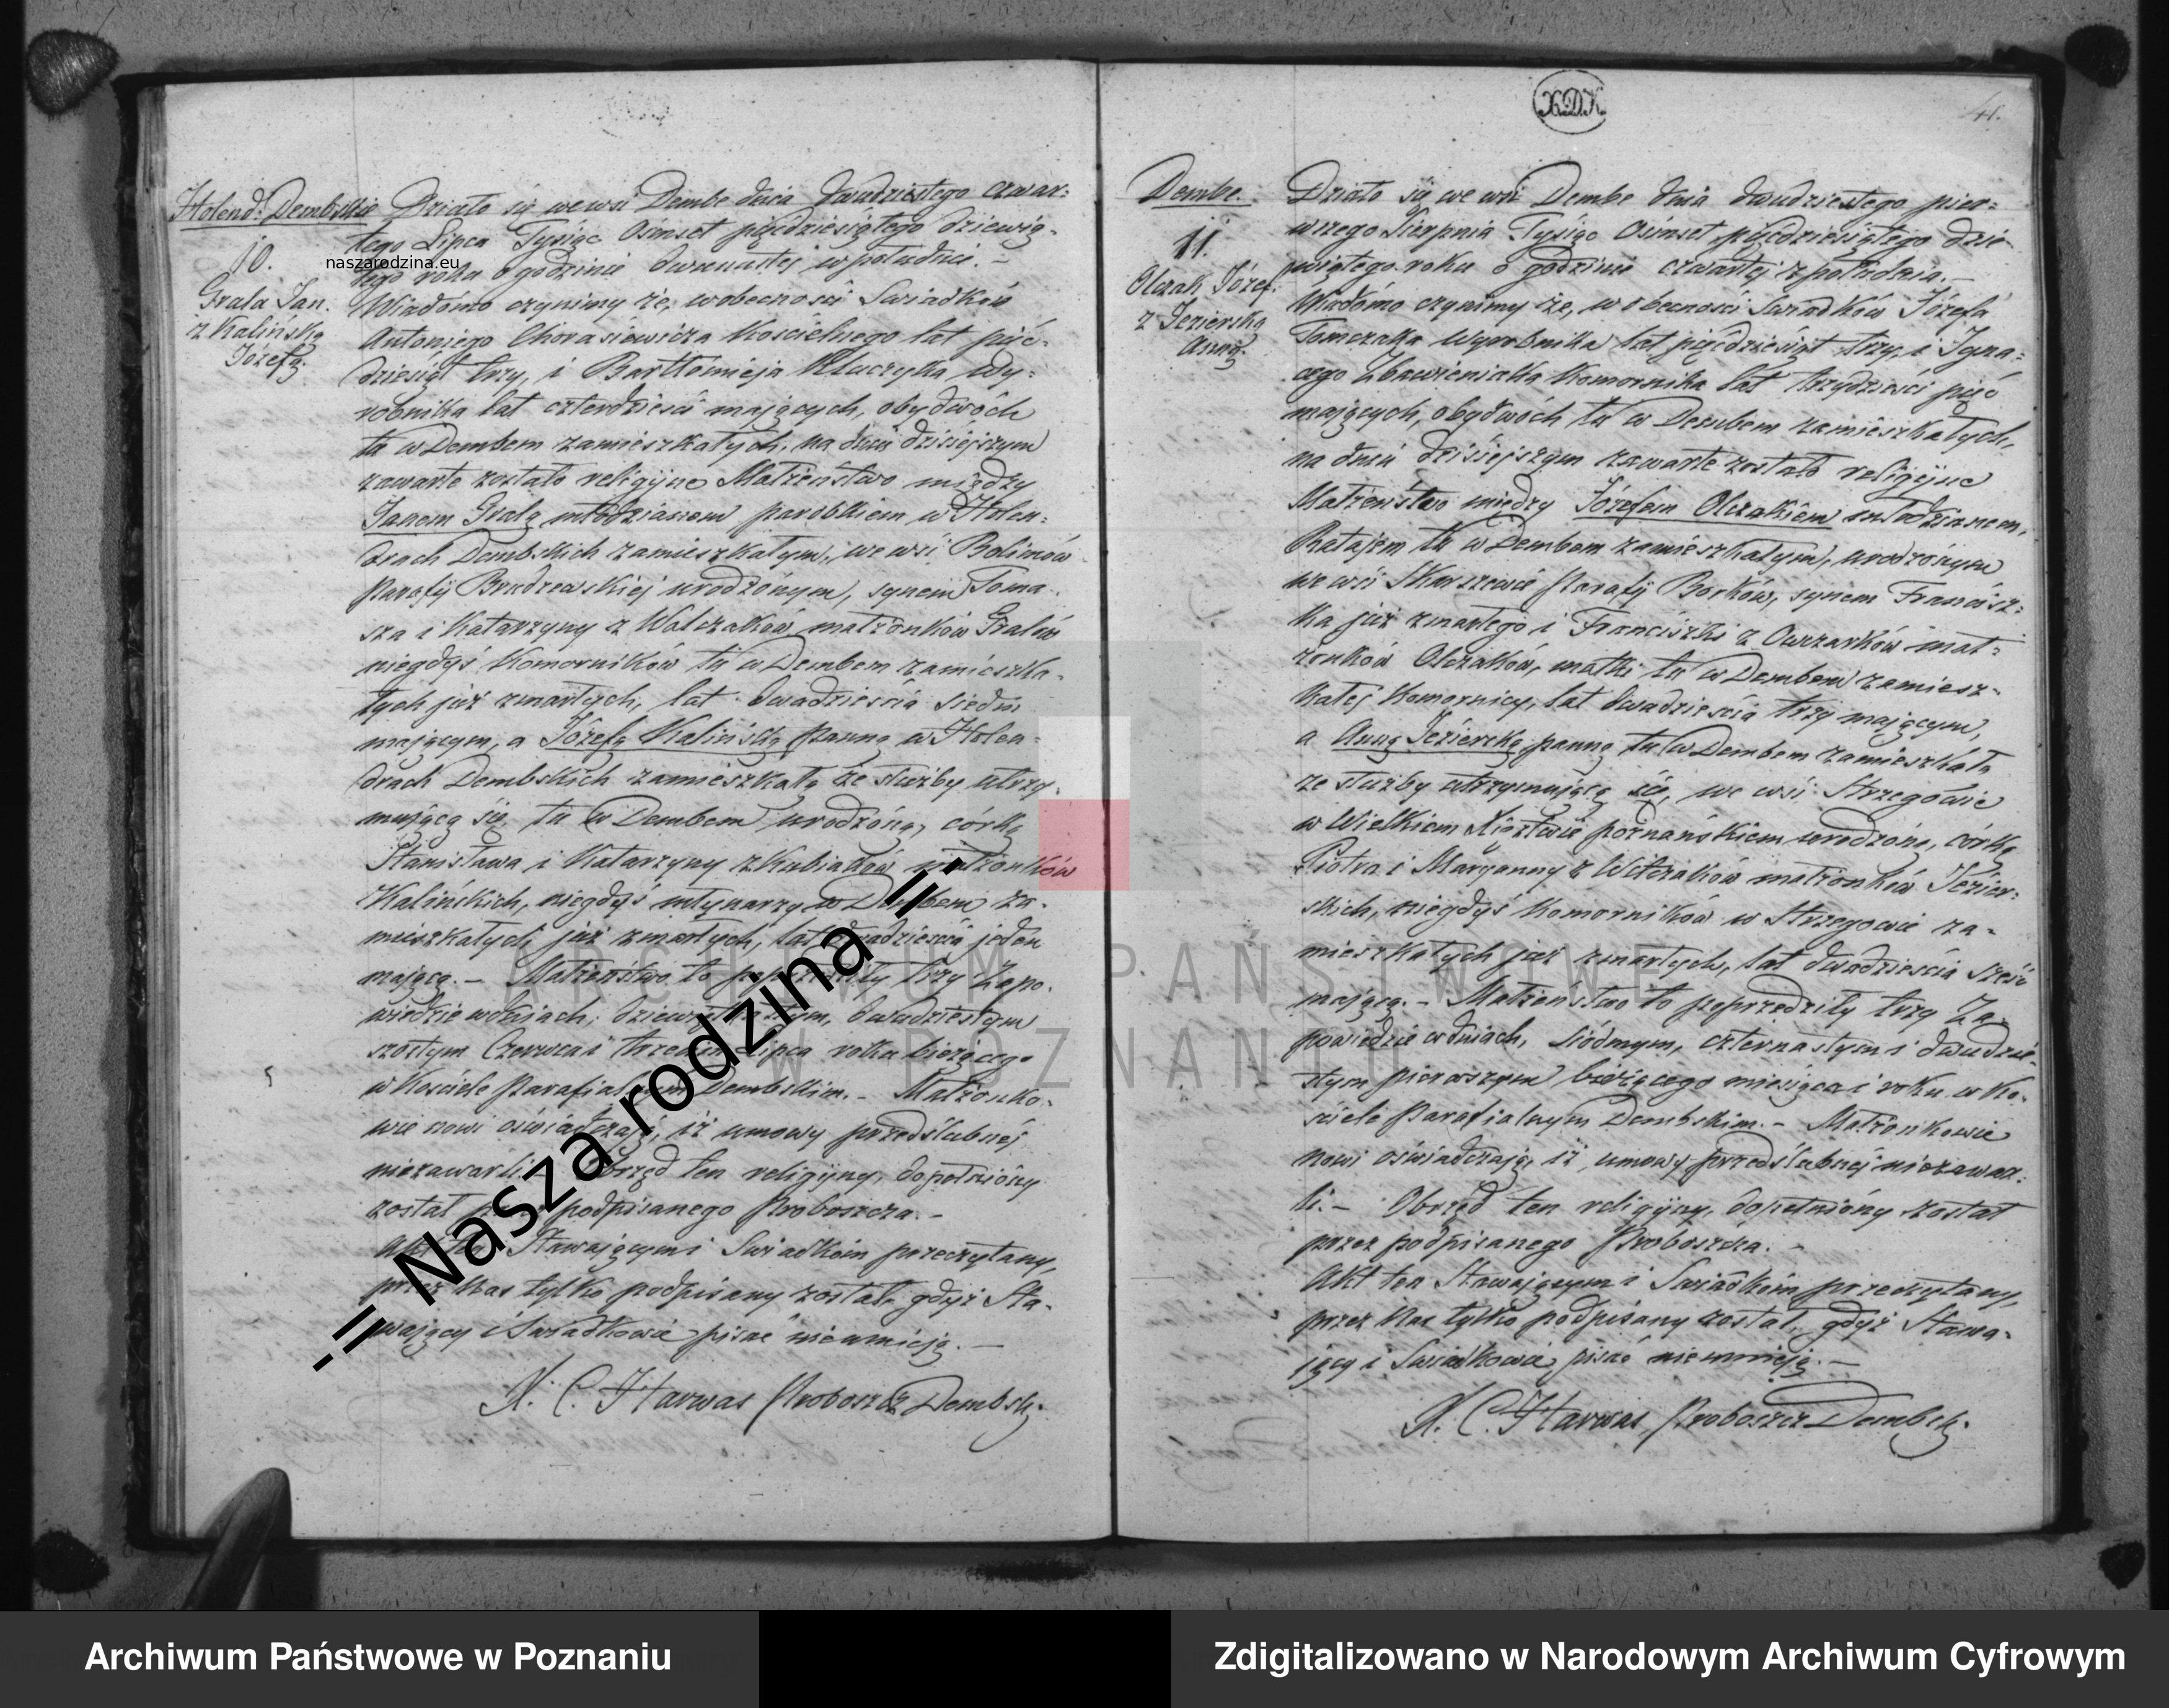 Holend: Dembskie
10.
Grala Jan.
z Kalińską
Józefą.
Działo się we wsi Dembe dnia dwudziestego czwar=
tego Lipca Tysiąc Ośmset pięćdziesiątego dziewią-
tego roku o godzinie dwunastej w południe. –
Wiadomo czynimy że, w obecności Świadków
Antoniego Chorasiewicza Kościelnego lat pięć-
dziesiąt trzy, i Bartłomieja Kluczyka Wy-
robnika lat czterdzieści mających, obydwóch
tu w Dembem zamieszkałych, na dniu dzisiejszym
zawarte zostało religijne Małżeństwo między
Janem Gralą młodzianem parobkiem w Holen=
drach Dembskich zamieszkałym, we wsi Bolimów
Parafij Brudzewskiej urodzonym, synem Toma-
sza i Katarzyny z Walczaków małżonków Gralów
niegdyś Komorników tu w Dembem zamieszka-
łych już zmarłych, lat dwadzieścia siedm
mającym, a Józefą Kalińską Panną w Holen-
drach Dembskich zamieszkałą ze służby utrzy-
mującą się, tu w Dembem urodzoną, córką
Stanisława i Katarzyny z Kubiaków małżonków
Kalińskich, niegdyś młynarzy w Dembem za-
mieszkałych już zmarłych, lat dwadzieścia jeden
mającą. – Małżeństwo to poprzedziły trzy Zapo-
wiedzie w dniach, dziewiętnastym, dwudziestym
szóstym Czerwca i trzecim Lipca roku bieżącego
w Kościele Parafialnym Dembskim. – Małżonko-
wie nowi oświadczają, iż umowy przedślubnej
niezawarli. – Obrzęd ten religijny, dopełniony
został przez podpisanego Proboszcza. –
Akt ten Stawającym i Świadkom przeczytany,
przez Nas tylko podpisany został, gdyż Sta-
wający i Świadkowie pisać nieumieją. –
X. C. Harwas Proboszcz Dembski.
KDK
41.
Dembe.
11.
Olczak Józef.
z Jezierską
Anną.
Działo się we wsi Dembe dnia dwudziestego pier=
wszego Sierpnia Tysiąc Ośmset pięćdziesiątego dzie-
wiątego roku o godzinie czwartej z południa. –
Wiadomo czynimy że, w obecności Świadków Józefa
Tomczaka Wyrobnika lat pięćdziesiąt trzy, i Igna=
cego Zbawieniaka Komornika lat trzydzieści pięć
mających, obydwóch tu w Dembem zamieszkałych,
na dniu dzisiejszym zawarte zostało religijne
Małżeństwo między Józefem Olczakiem młodzianem,
Ratajem tu w Dembem zamieszkałym, urodzonym
we wsi Skarszewie Parafij Borków, synem Francisz=
ka już zmarłego i Franciszki z Owczarków mał=
żonków Olczaków, matki tu w Dembem zamiesz-
kałej Komornicy, lat dwadzieścia trzy mającym,
a Anną Jezierską panną tu w Dembem zamieszkałą
ze służby utrzymującą się, we wsi Strzegowie
w Wielkiem Księztwie poznańskiem urodzoną, córką
Piotra i Maryanny z Witczaków małżonków Jezier=
skich, niegdyś Komorników w Strzegowie za-
mieszkałych już zmarłych, lat dwadzieścia sześć
mającą. – Małżeństwo to poprzedziły trzy Za-
powiedzie w dniach, siódmym, czternastym i dwudzie-
stym pierwszym bieżącego miesiąca i roku w Ko-
ściele Parafialnym Dembskim. – Małżonkowie
nowi oświadczają, iż umowy przedślubnej niezawar-
li. – Obrzęd ten religijny, dopełniony został
przez podpisanego Proboszcza. –
Akt ten Stawającym i Świadkom przeczytany,
przez Nas tylko podpisany został, gdyż Stawa-
jący i Świadkowie pisać nieumieją. –
X. C. Harwas Proboszcz Dembsk.
naszarodzina.eu
-=Nasza rodzina=-
ARCHIWUM PAŃSTWOWE
W POZNANIU
Archiwum Państwowe w Poznaniu
Zdigitalizowano w Narodowym Archiwum Cyfrowym